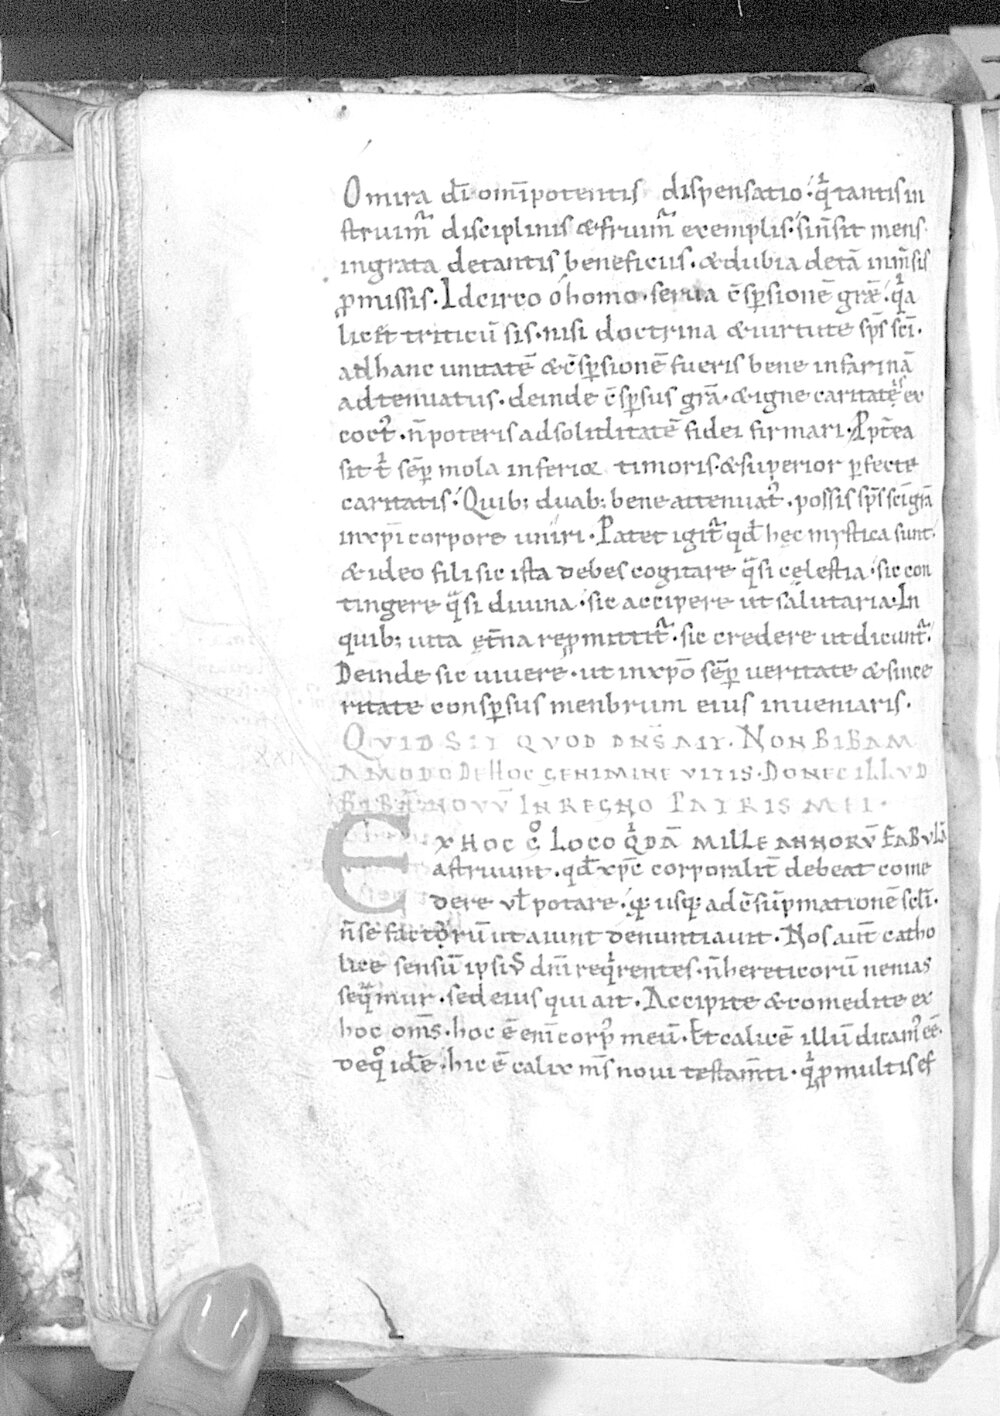 O mira dī om̄ipotentis dispensatio. qͥ tantis in
struimᷓ disciplinis &fruimᷓ exemplis. sin̄sit mens
ingrata detantis beneficiis. &dubia detā inm̄sis
ꝓmissis. Idcirco ó homo. serua c̄sꝑsionē grę̄. qͥa
lic& triticū sis. nisi doctrina &uirtute sp̄s sc̄i.
adhanc unitatē &c̄sꝑsionē fueris bene infarinā
adtenuatus. deinde c̄sꝑsus grā. &igne caritatē ex
coct᾽. n̄ poteris adsoliditatē fidei firmari. Ppt̄ea
sit t̄ sēꝑ mola inferior timoris. &superior ꝑfecte
caritatis. Quib; duab; bene attenuat᾽. possis sp̄s sc̄i grā
inxp̄i corpore uniri. Patet igit᷑ qd̄ hęc mystica sunt.
&ideo fili sic ista debes cogitare qᷓsi celestia. sic con
tingere qᷓsi diuina. sic accipere ut salutaria. In
quib; uita et̄na reꝓmittit᷑. sic credere ut dicunt᷑.
Deinde sic uiuere. ut inxp̄o sēꝑ ueritate &since
ritate consꝑsus menbrum eius inueniaris.
QVID SIT QVOD DN̄S AIT. NON BIBAM
AMODO DEHOC GENIMINE VITIS. DONEC ILLVD
BIBĀ NOVV̄ IN REGNO PATRIS MEI.
EX HOC G̊ LOCO QͥDĀ MILLE ANNORV̄ FABVLĀ
astruunt. qd̄ xp̄c corporalit̄ debeat come
dere vł potare. qͥ usq; adc̄sūpmationē sc̄li.
n̄se factorū ut aiunt denuntiauit. Nos aut̄ catho
lice sensū ipsiꝰ dn̄i reqͥrentes. n̄hereticorū nenias
seqᷓmur. sed eius qui ait. Accipite &comedite ex
hoc om̄s. hoc ē eni̅ corp᾽ meū. Et calicē illū dicam᾽ eē.
deq̊ idē. hic ē calix m̄s noui testam̄ti. qͥ ꝓmultis ef